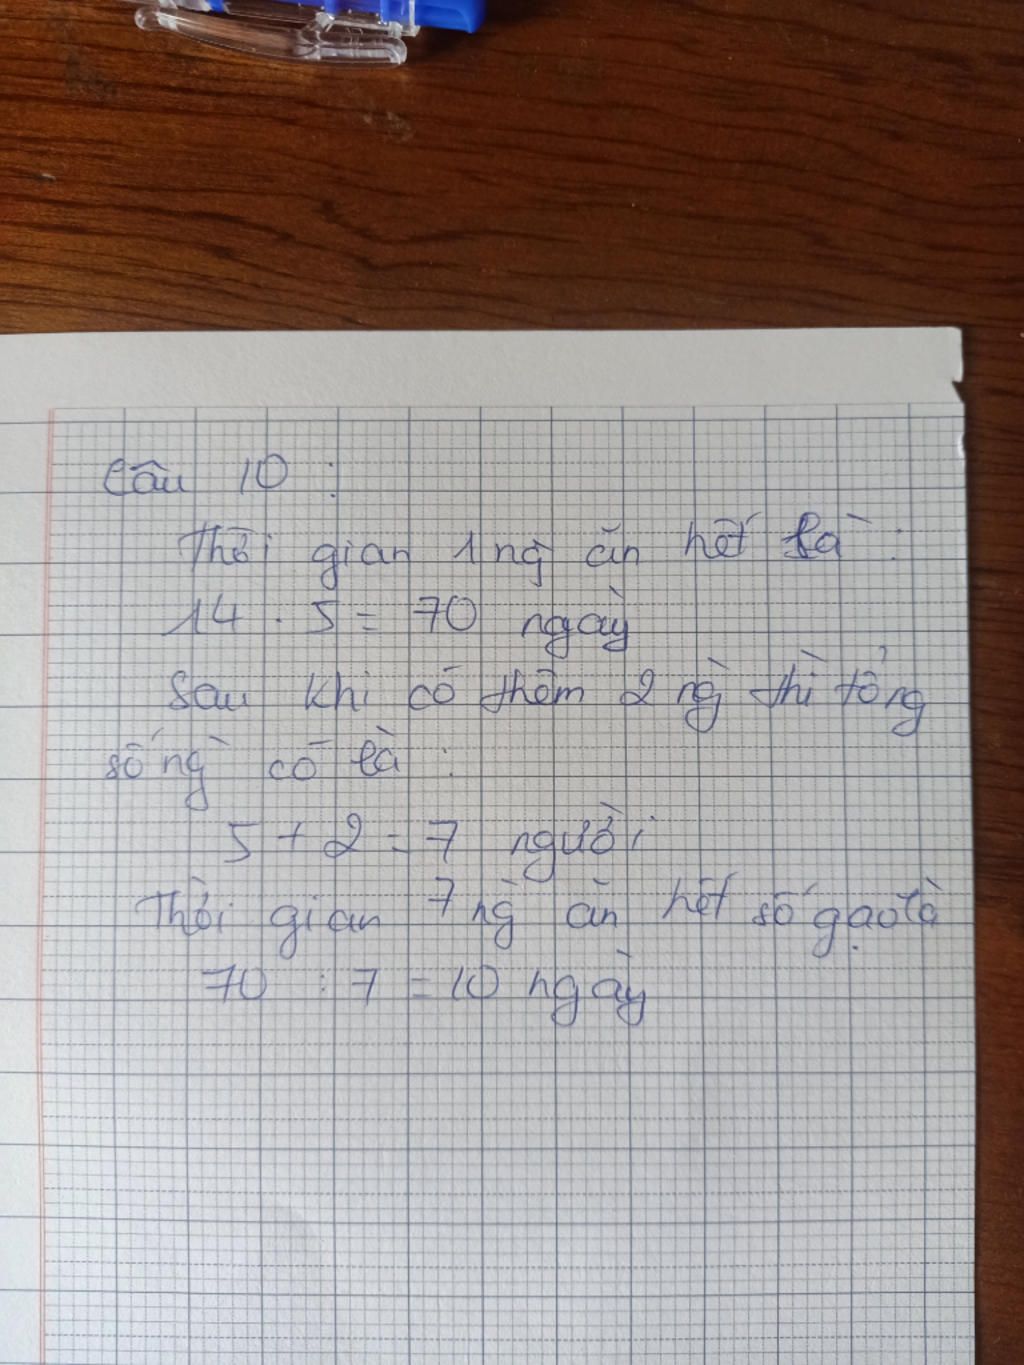 Câu 10 :
Thời gian 1 ng ăn hết là :
14 . 5 = 70 ngày
Sau khi có thêm 2 ng thì tổng
số ng có là :
5 + 2 = 7 người
Thời gian 7 ng ăn hết số gạo là
70 : 7 = 10 ngày